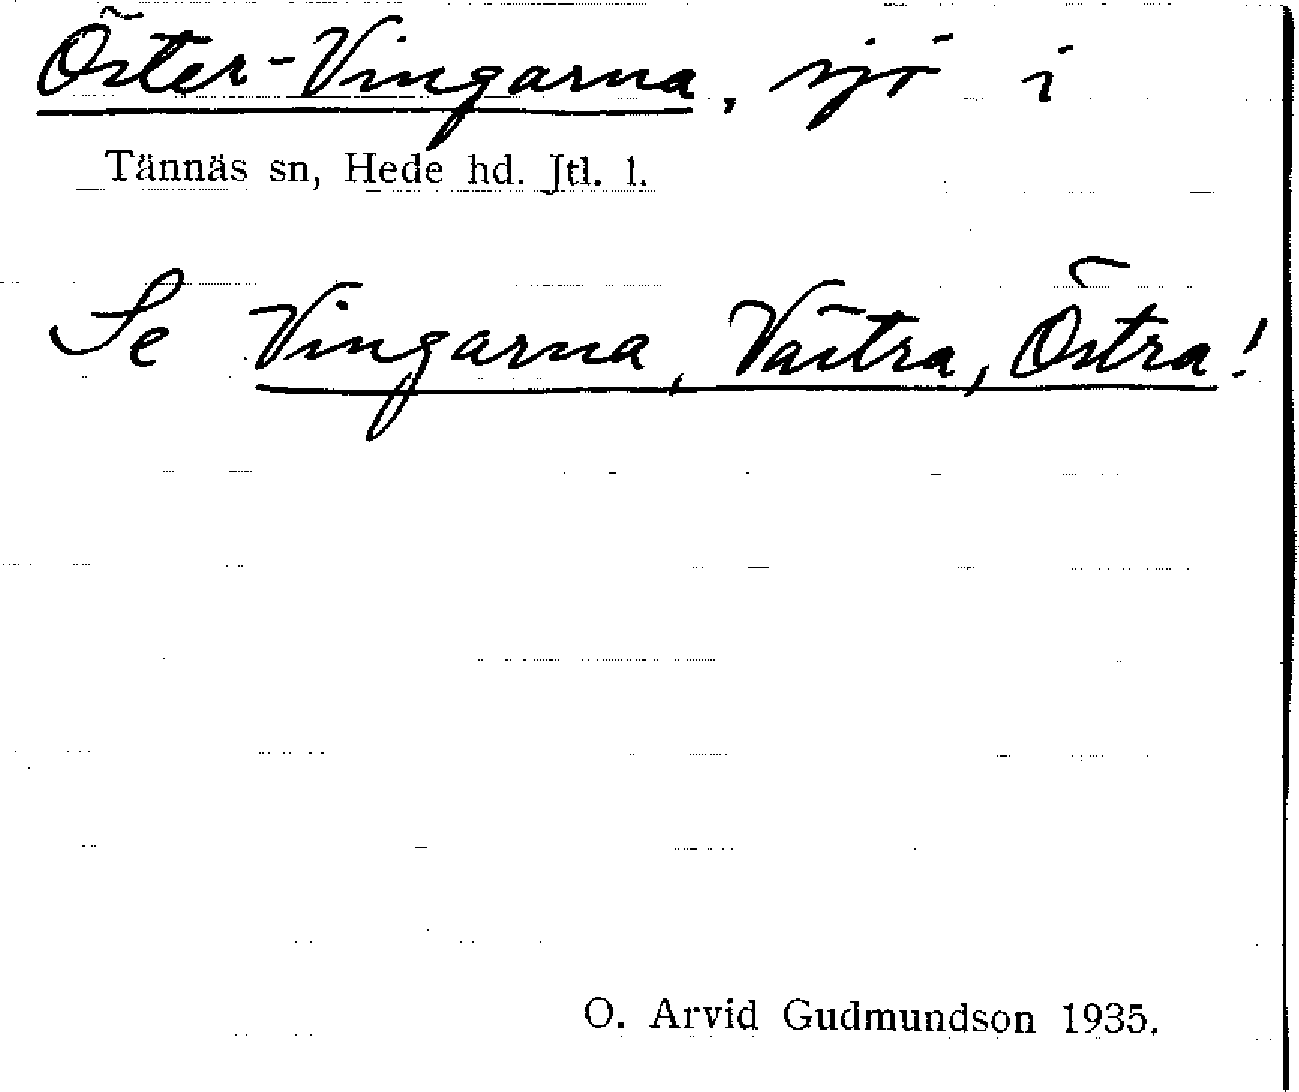 Öster-Vingarna, sjö i
Tännäs sn, Hede hd. Jtl. l.
Se Vingarna, Västra, Östra!
O. Arvid Gudmundson 1935.